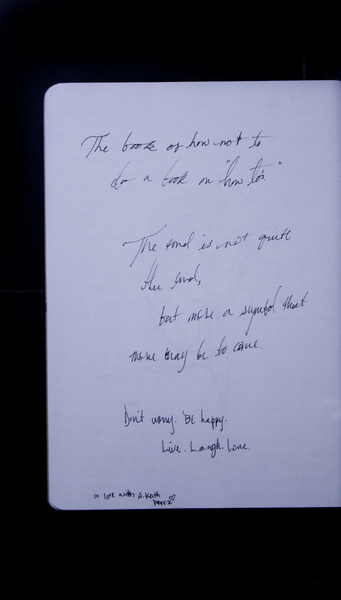 The book of how not to
do a book on "how to's"
The end is not quite
the end,
but more a symbol that
more may be to come.
Don't worry. Be happy.
Live. Laugh. Love.
in love with A. Keith